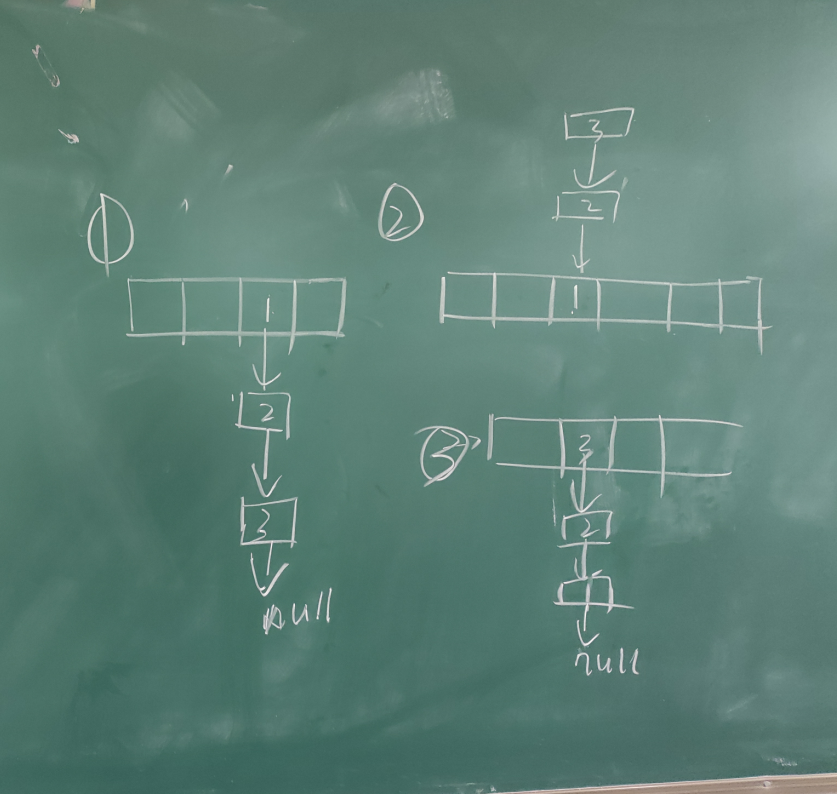 ①
1
2
3
null
②
3
2
1
③
3
2
1
null